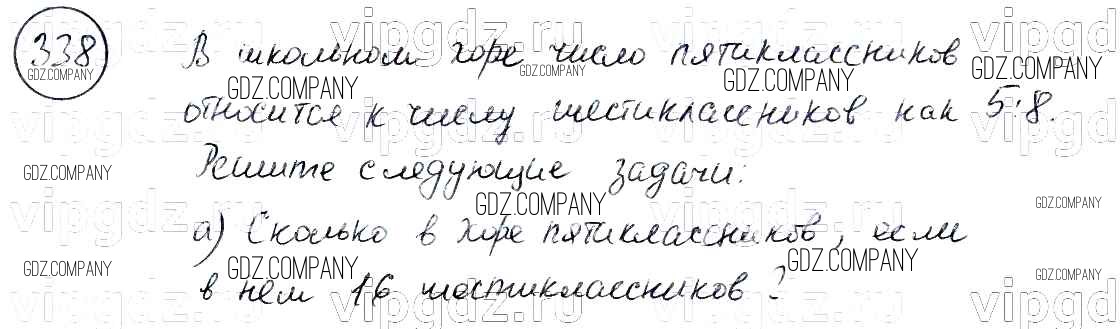 338
В школьном хоре число пятиклассников
относится к числу шестиклассников как 5:8.
Решите следующие задачи:
а) Сколько в хоре пятиклассников, если
в нём 16 шестиклассников?
vipgdz.ru
GDZ.COMPANY